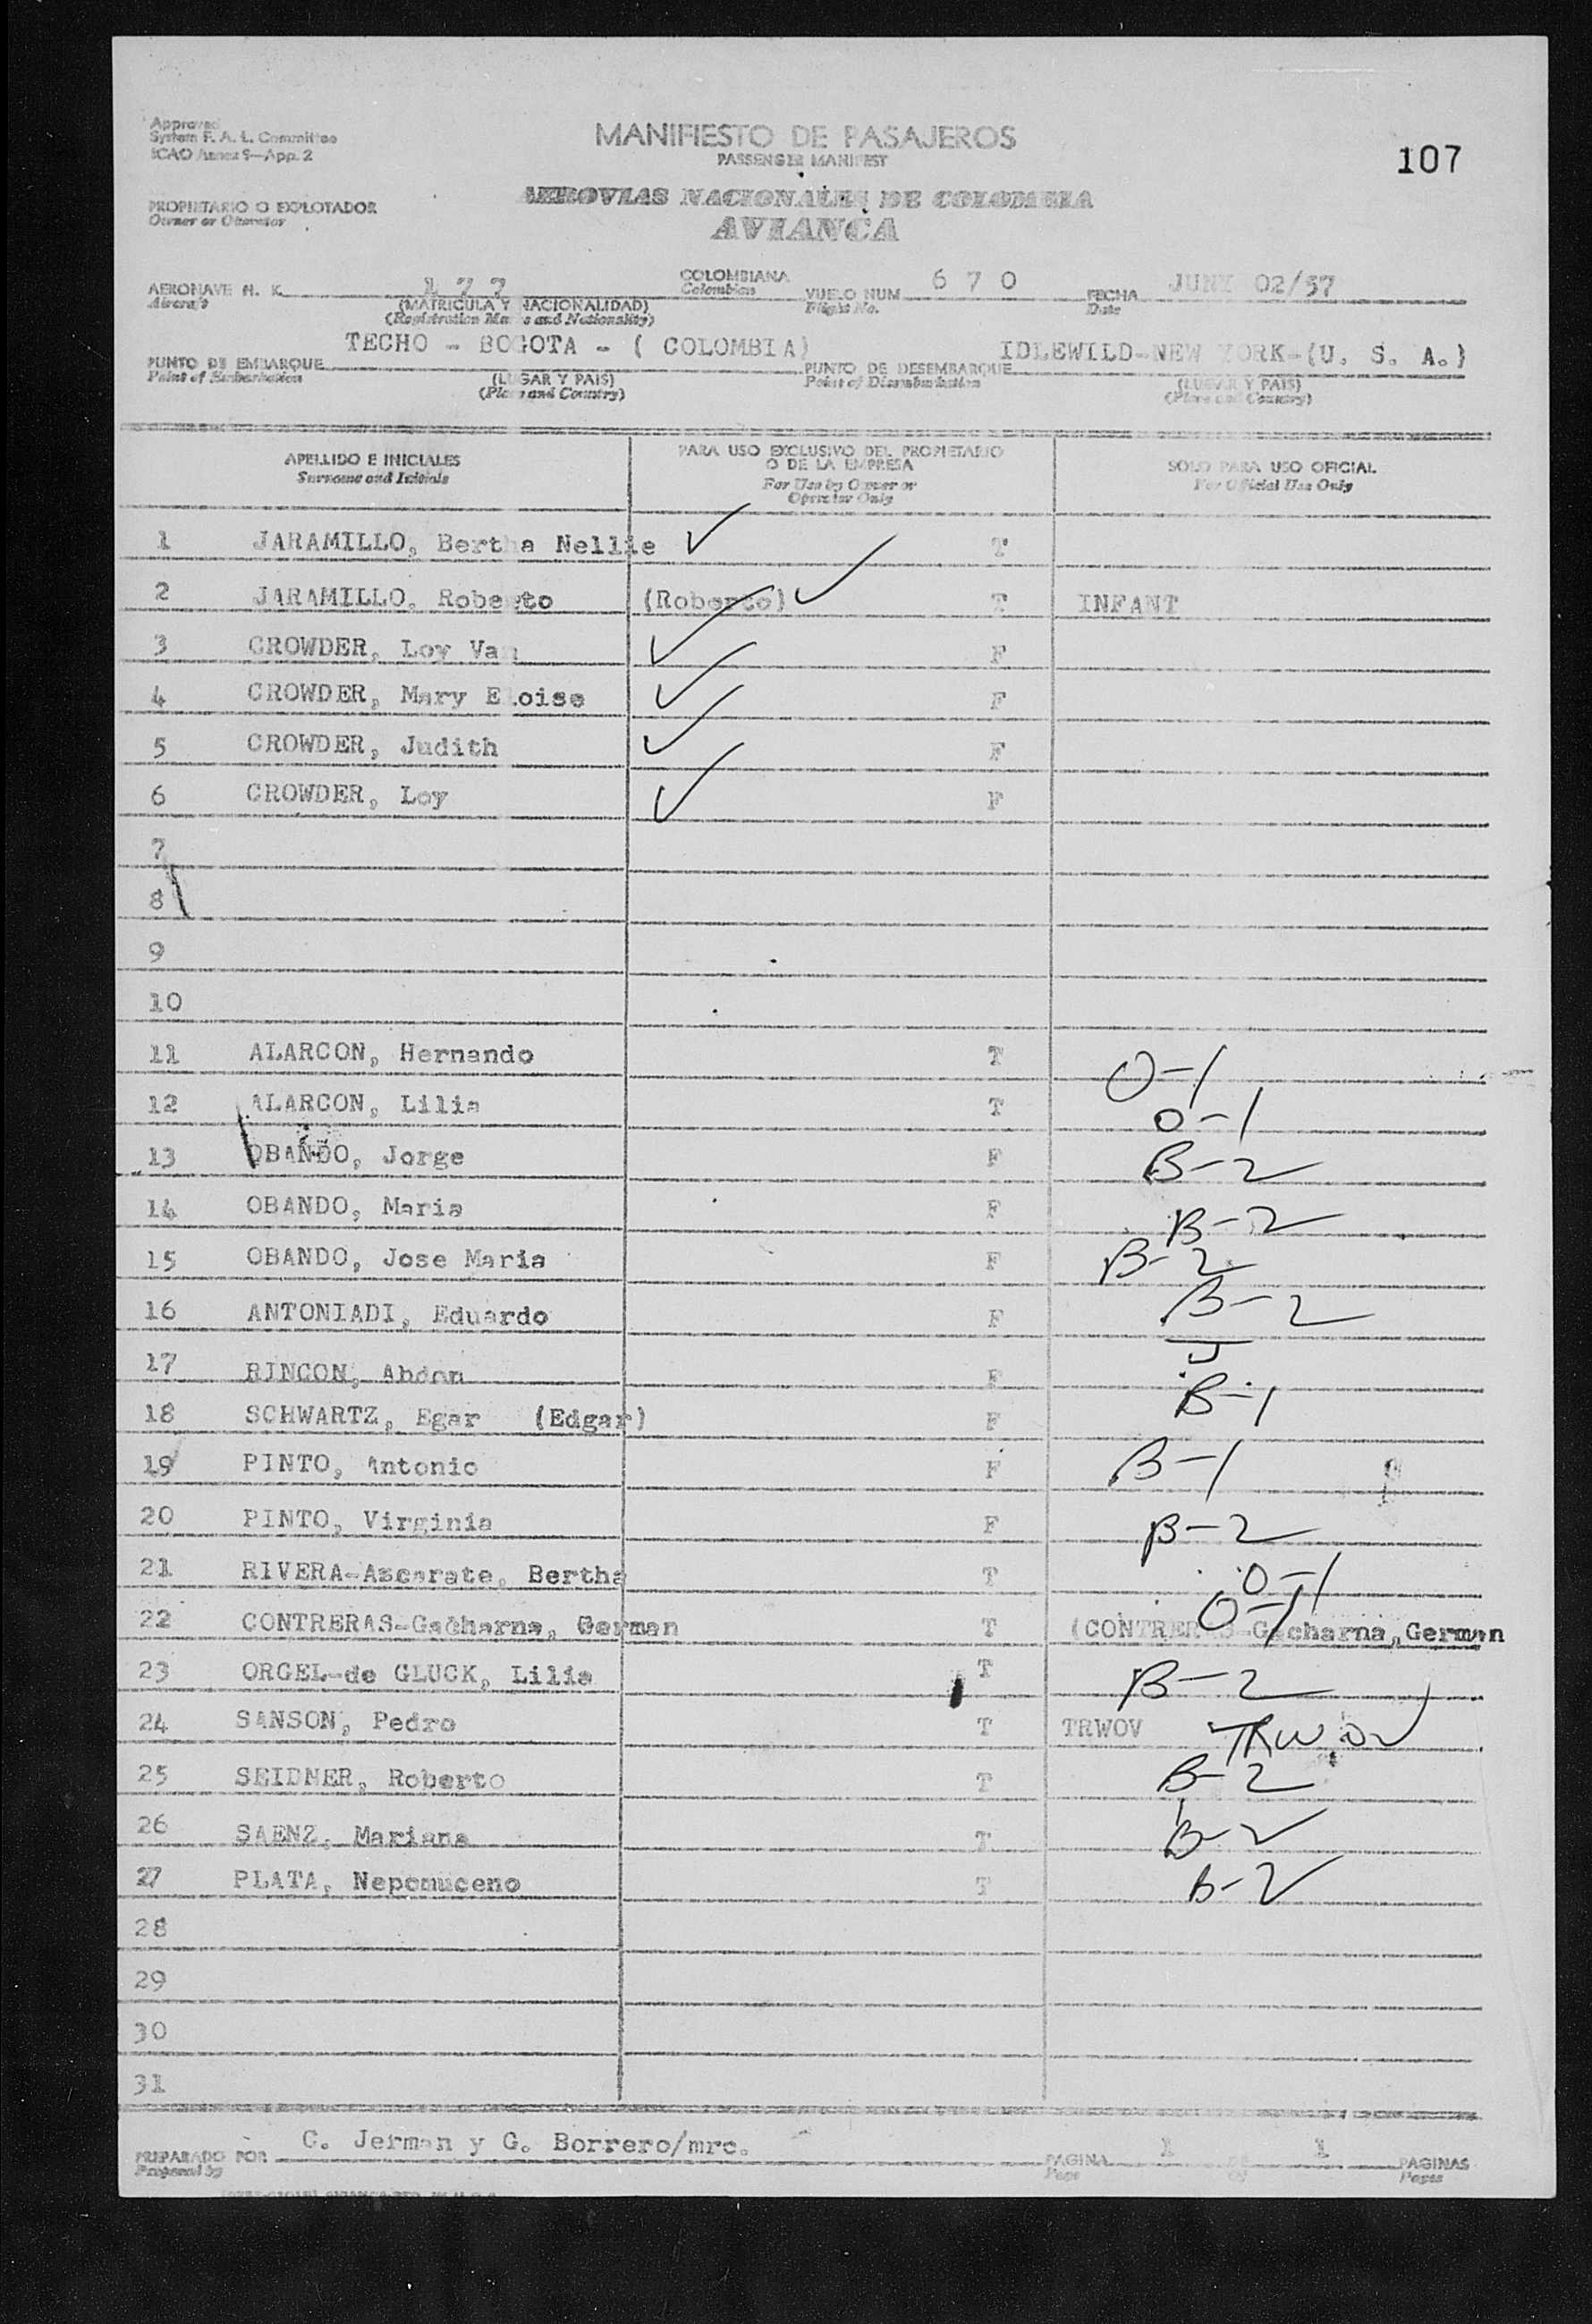 Approved
System F. A. L. Committee
ICAO Annex 9—App. 2
MANIFIESTO DE PASAJEROS
PASSENGER MANIFEST
107
PROPIETARIO O EXPLOTADOR
Owner or Operator
AEROVIAS NACIONALES DE COLOMBIA
AVIANCA
AERONAVE H. K. 1 7 7 COLOMBIANA VUELO NUM. 6 7 0 FECHA JUNY 02/57
Aircraft (MATRICULA Y NACIONALIDAD) Colombian Flight No. Date
(Registration Marks and Nationality)
PUNTO DE EMBARQUE TECHO - BOGOTA - ( COLOMBIA) PUNTO DE DESEMBARQUE IDLEWILD-NEW YORK-(U. S. A.)
Point of Embarkation (LUGAR Y PAIS) Point of Disembarkation (LUGAR Y PAIS)
(Place and Country) (Place and Country)
APELLIDO E INICIALES PARA USO EXCLUSIVO DEL PROPIETARIO SOLO PARA USO OFICIAL
Surname and Initials O DE LA EMPRESA For Official Use Only
For Use by Owner or
Operator Only
1 JARAMILLO, Bertha Nellie ✓ T
2 JARAMILLO, Roberto (Roberto) ✓ T INFANT
3 CROWDER, Loy Van ✓ F
4 CROWDER, Mary Eloise ✓ F
5 CROWDER, Judith ✓ F
6 CROWDER, Loy ✓ F
7
8
9
10
11 ALARCON, Hernando T O-1
12 ALARCON, Lilia T O-1
13 OBANDO, Jorge F B-2
14 OBANDO, Maria F B-2
15 OBANDO, Jose Maria F B-2
16 ANTONIADI, Eduardo F B-2
17 RINCON, Abdon F
18 SCHWARTZ, Egar (Edgar) F B-1
19 PINTO, Antonio F B-1
20 PINTO, Virginia F B-2
21 RIVERA-Ascarate, Bertha T O-1
22 CONTRERAS-Gacharna, German T O-1 (CONTRERAS-Gacharna, German
23 ORGEL-de GLUCK, Lilia T B-2
24 SANSON, Pedro T TRWOV TRWOV
25 SEIDNER, Roberto T B-2
26 SAENZ, Mariana T B-2
27 PLATA, Nepomuceno T B-2
28
29
30
31
PREPARADO POR C. Jerman y G. Borrero/mrc. PAGINA 1 DE 1 PAGINAS
Prepared by Page of Pages